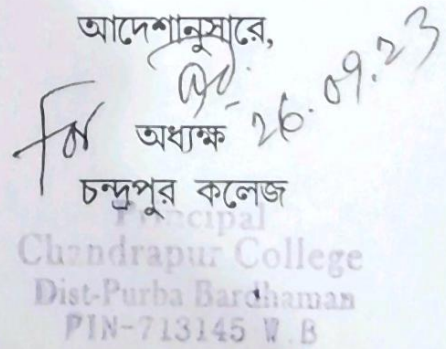 আদেশানুসারে,
For অধ্যক্ষ 26.09.23
চন্দ্রপুর কলেজ
Principal
Chandrapur College
Dist-Purba Bardhaman
PIN-713145 W.B